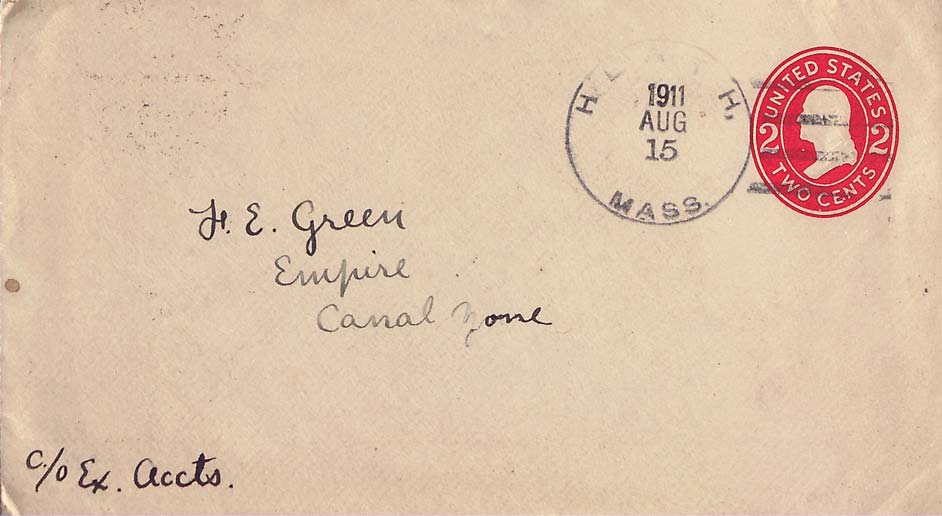 HEATH,
1911
AUG
15
MASS.
UNITED STATES
2 2
TWO CENTS
H. E. Green
Empire
Canal Zone
c/o Ex. Accts.